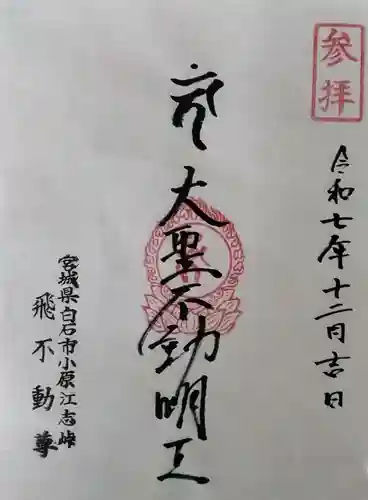 参拝
令和七年十二月吉日
大聖不動明王
宮城県白石市小原江志峠
飛不動尊